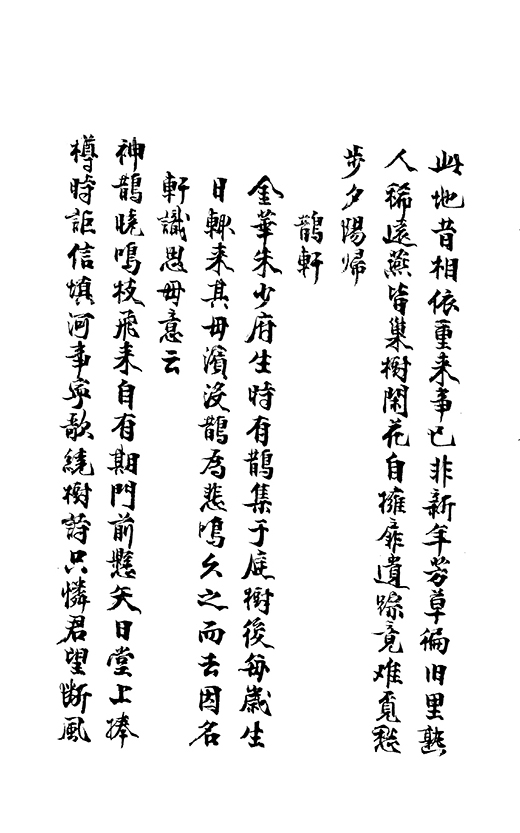 此地昔相依重来事已非新年芳草徧旧里熟
人稀遠燕皆巢樹閑花自擁扉遺踪竟难覓愁
步夕陽歸
鵲軒
金華朱少府生時有鵲集于庭樹後每歲生
日輒来其母濱没鵲為悲鳴久之而去因名
軒識思母意云
神鵲曉鳴枝飛来自有期門前懸矢日堂上捧
樽時詎信填河事寧歌繞樹詩只憐君望断風